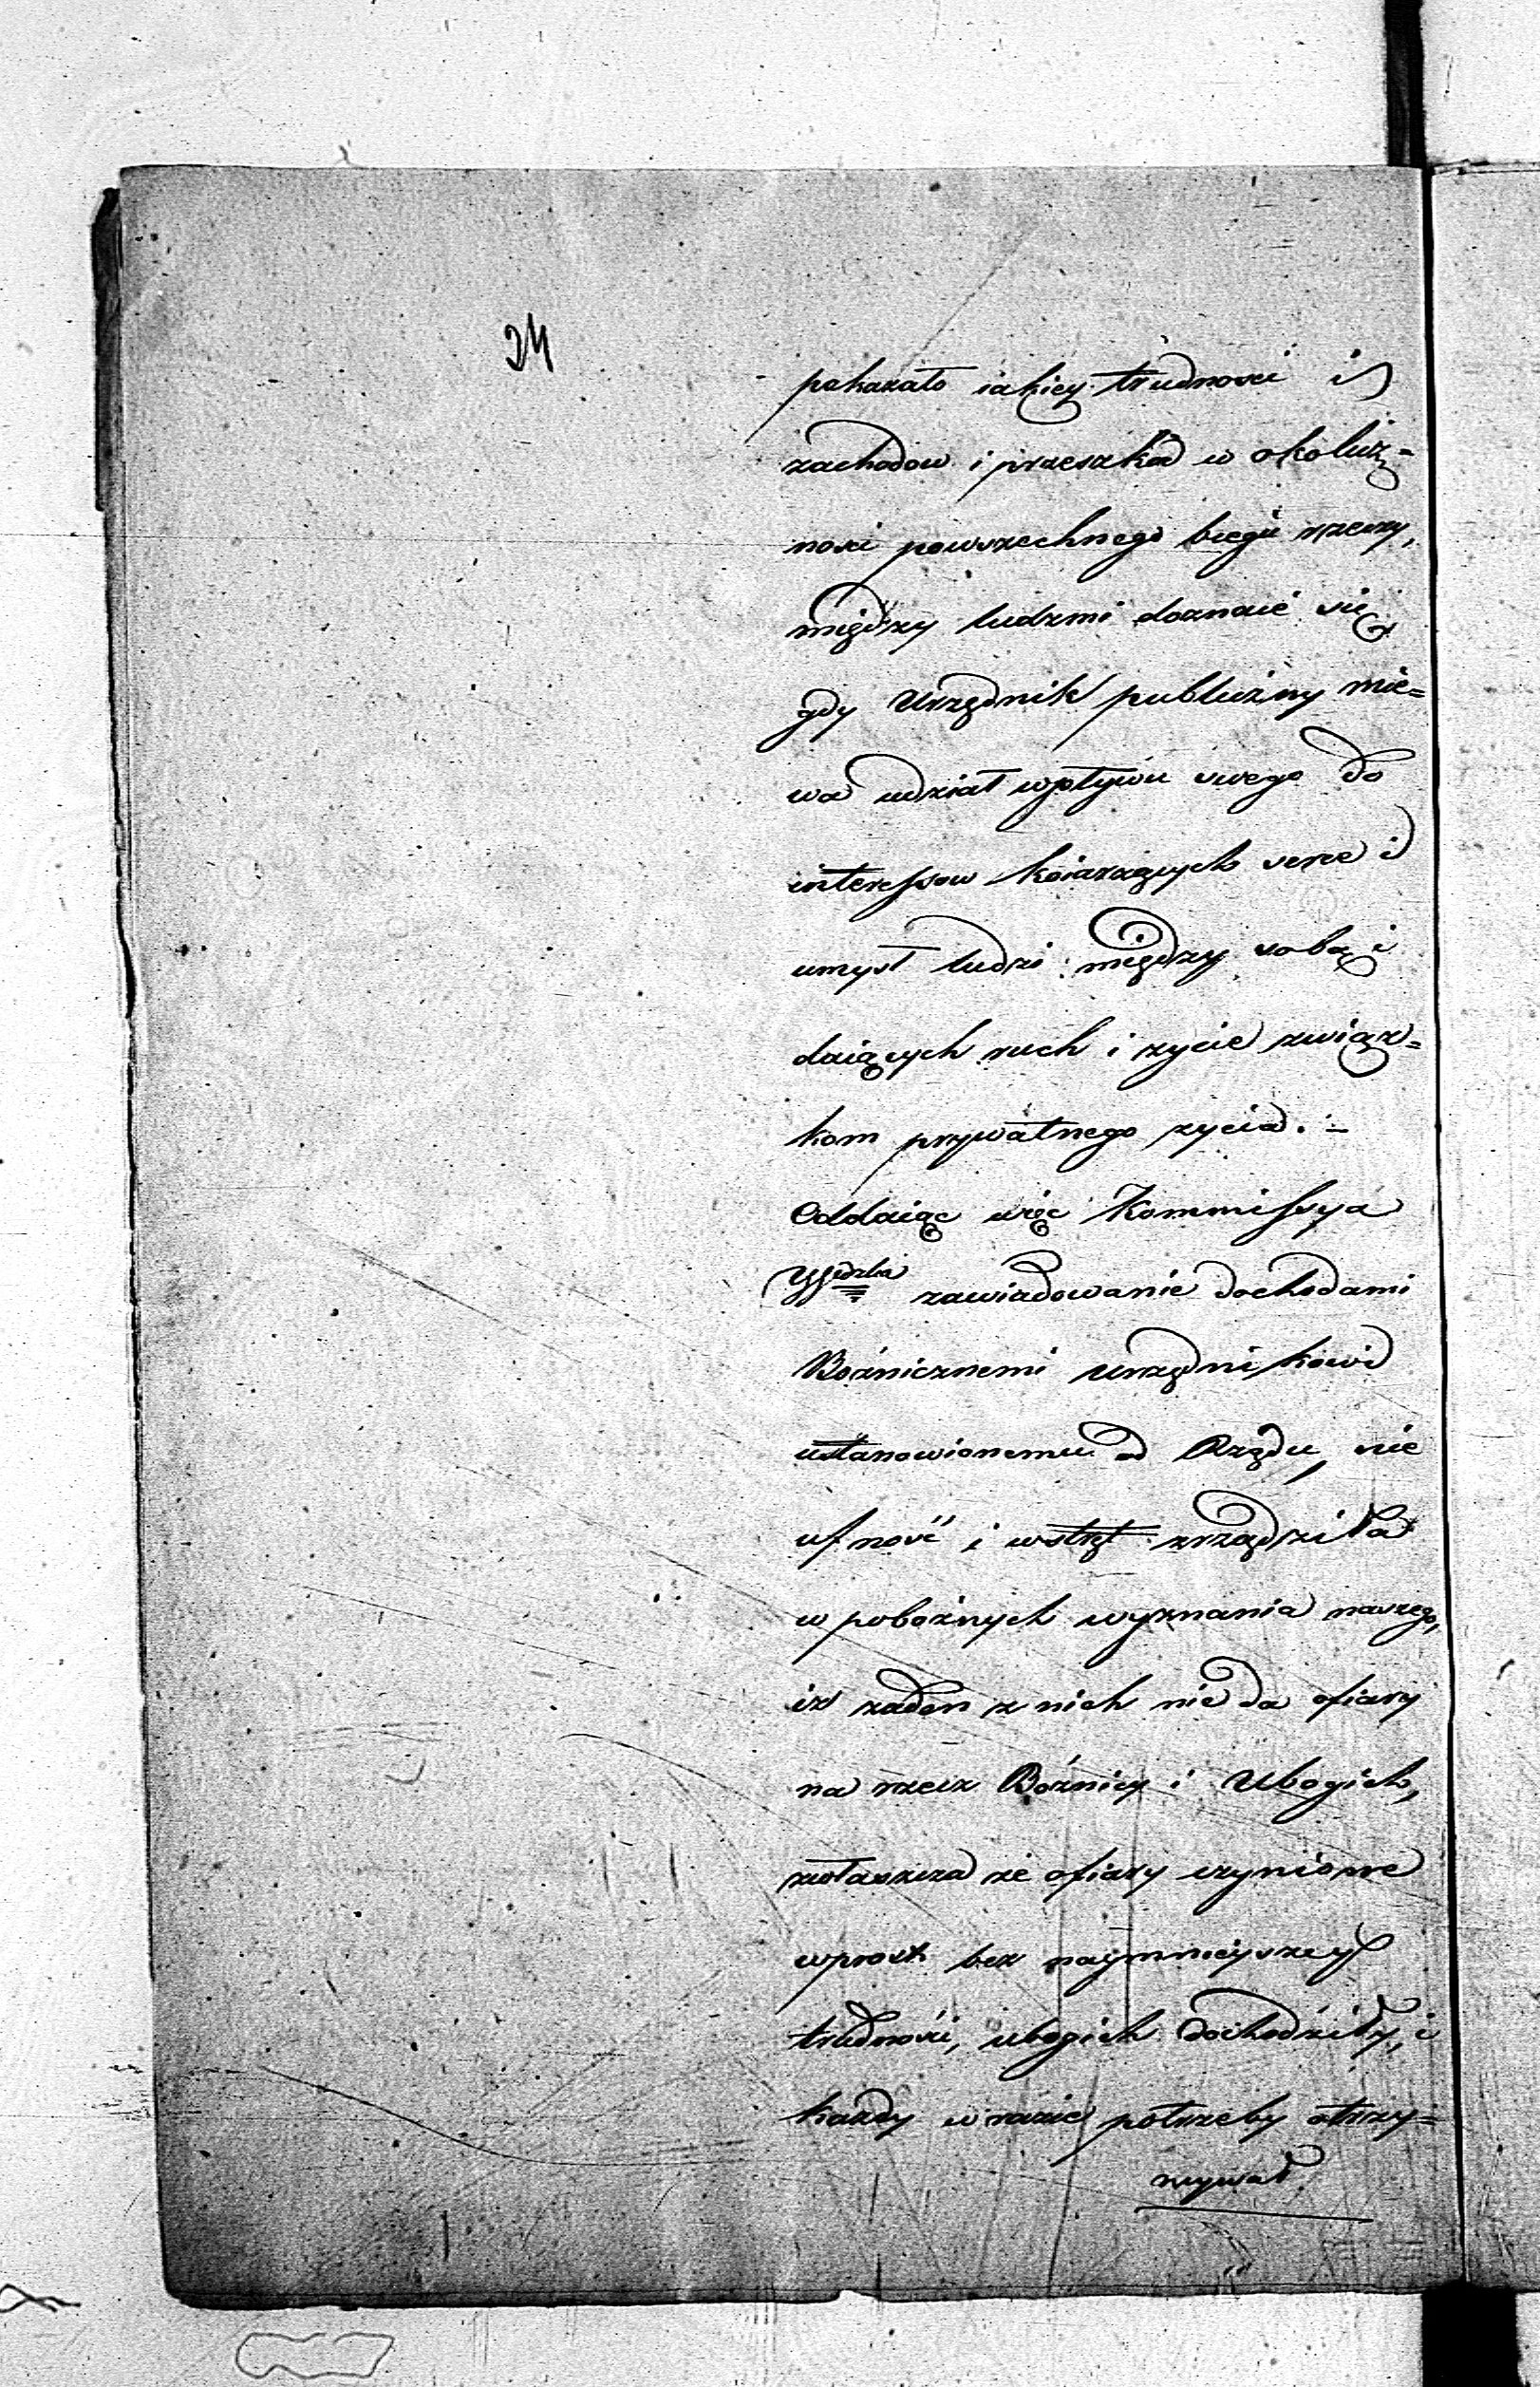 24
pokazało iakiey trudności i
zachodow i przeszkod w okolicz=
nosci powszechnego biegu rzeczy,
między ludzmi doznaie się
gdy Urzędnik publiczny mie=
wa udział wpływu swego do
interessow koiarzących serce i
umysł ludzi między sobą i
daiących ruch i zycie związ=
kom prywatnego zycia. –
Oddaiąc więc Kommissya
zawiadowanie dochodami
Boźnicznemi urzędnikowi
ustanowionemu od Rządu, nie
ufność i wstręt zrządziła
w pobożnych wyznania naszego,
iż zaden z nich nie da ofiary
na rzecz Boźnicy i Ubogich,
zwłaszcza że ofiary czynione
wprost bez naymnieyszey
trudności, ubogich dochodziły, i
każdy w razie potrzeby otrzy=
mywał